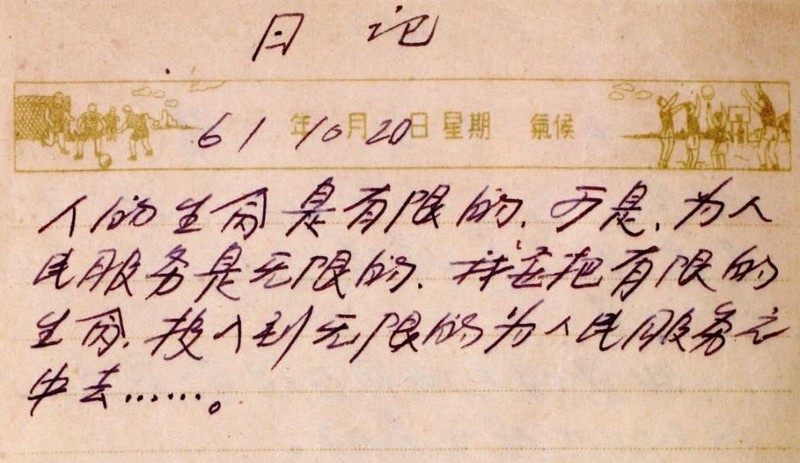 日记
61年10月20日星期 氣候
人的生命是有限的.可是.为人
民服务是无限的.我要把有限的
生命.投入到无限的为人民服务之
中去……。